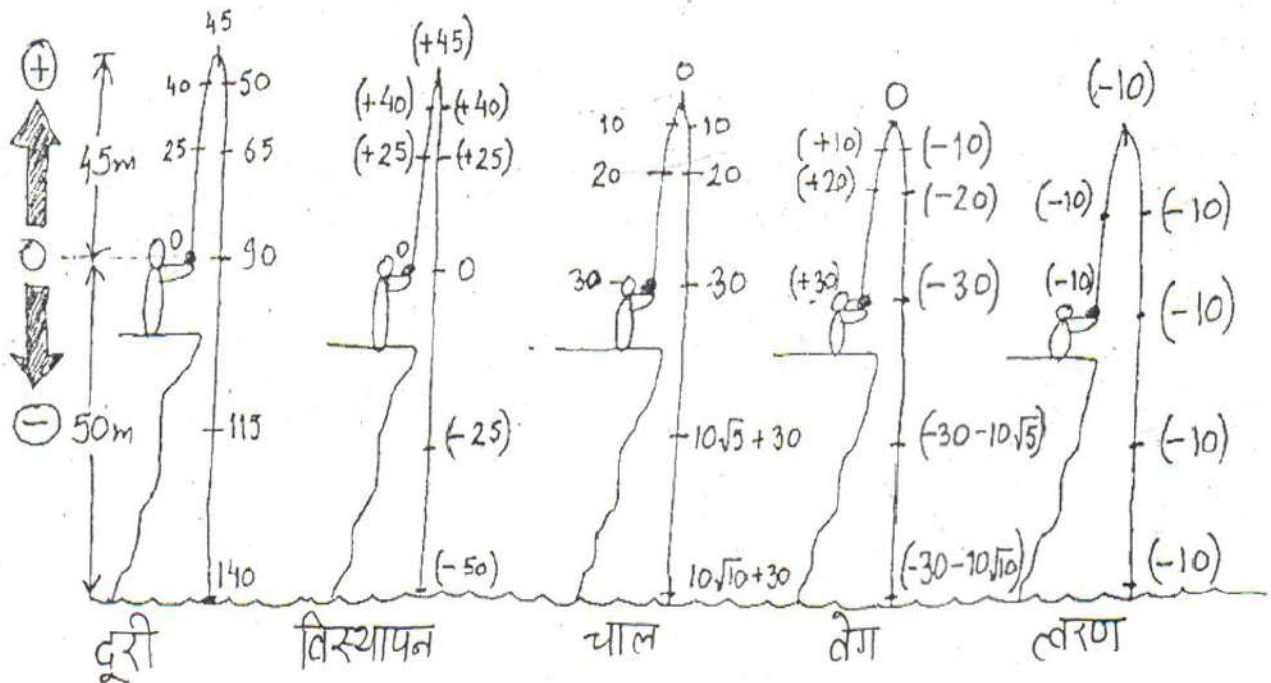 45
40 50
25 65
45m
0 90
50m 115
140
दूरी
(+45)
(+40) (+40)
(+25) (+25)
0 0
(-25)
(-50)
विस्थापन
0
10 10
20 20
30 30
10√5+30
10√10+30
चाल
0
(+10) (-10)
(+20) (-20)
(+30) (-30)
(-30-10√5)
(-30-10√10)
वेग
(-10)
(-10) (-10)
(-10) (-10)
(-10)
(-10)
त्वरण
+
0
-